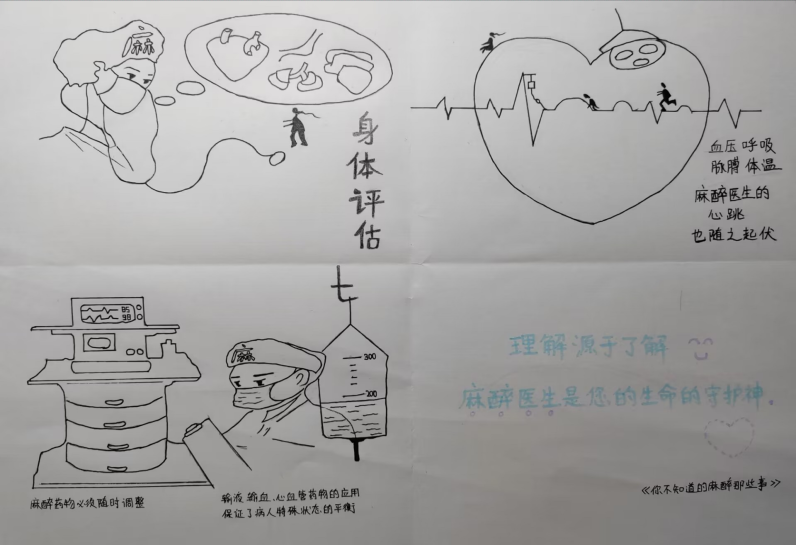 麻
身体评估
血压 呼吸
脉膊 体温
麻醉医生的
心跳
也随之起伏
85
98
麻醉药物必须随时调整
麻
300
200
输液、输血、心血管药物的应用
保证了病人特殊状态的平衡
理解源于了解
麻醉医生是您的生命的守护神。
《你不知道的麻醉那些事》